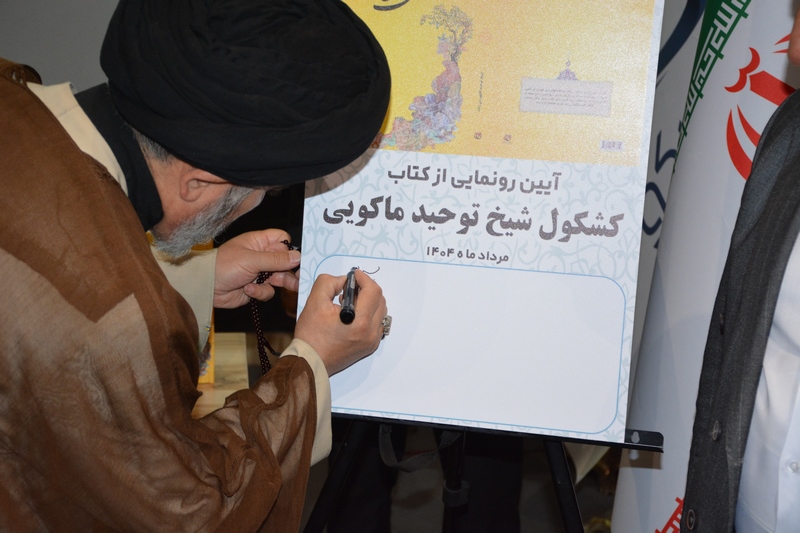 آیین رونمایی از کتاب
کشکول شیخ توحید ماکویی
مرداد ماه ۱۴۰۴